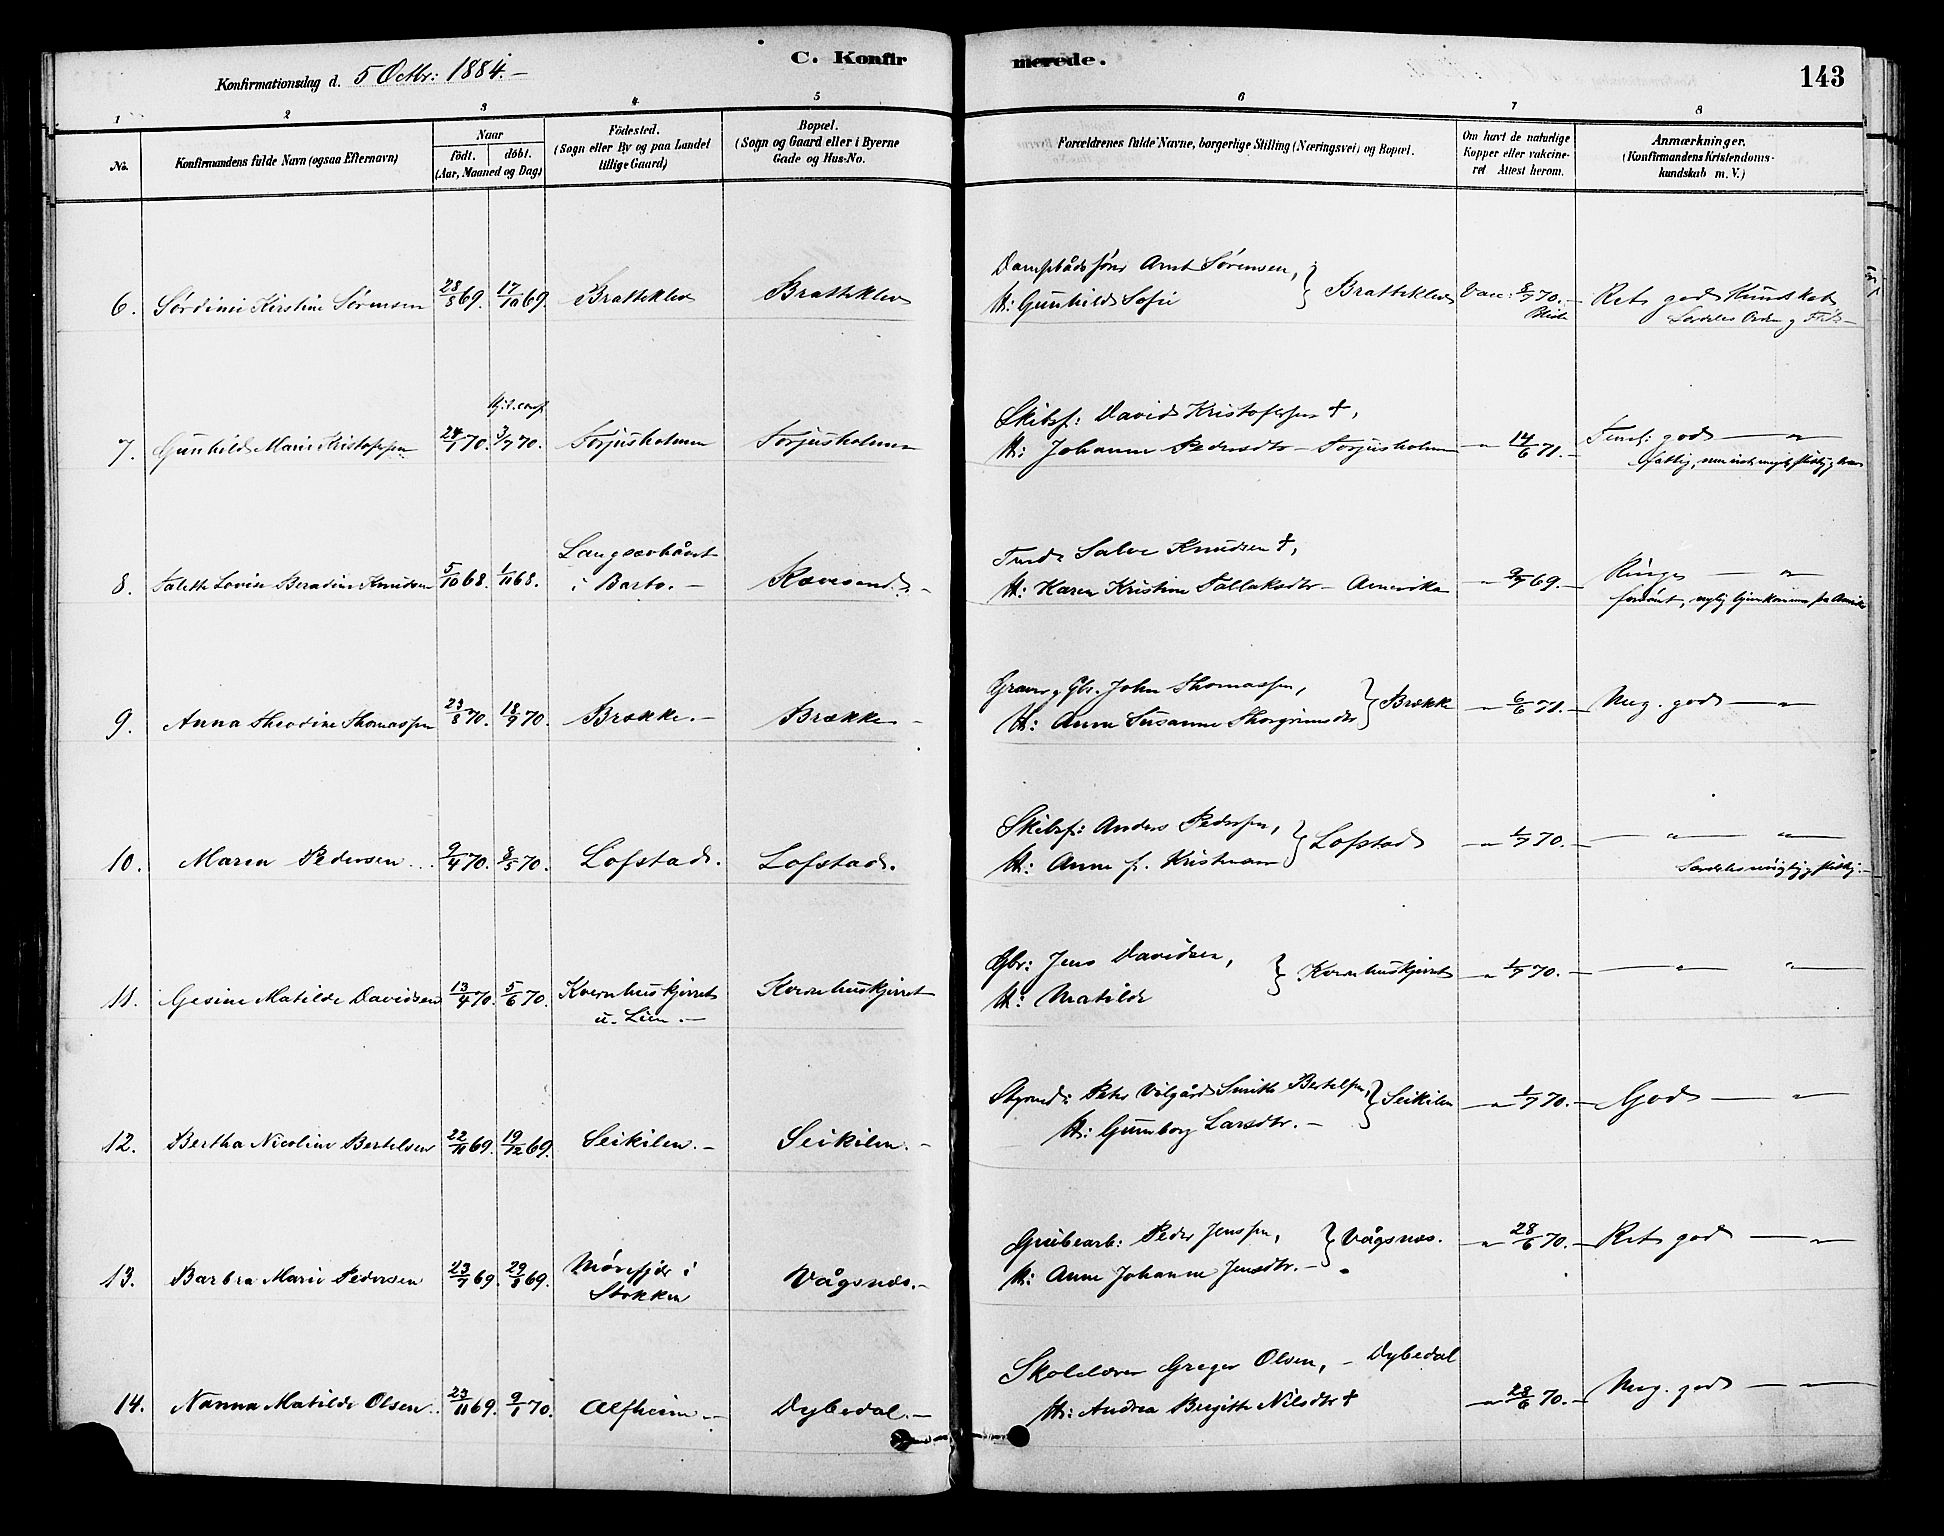 C. Konfirmerede.
143
Konfirmationsdag d. 5 Octbr: 1884.-
1 2 3 4 5 6 7 8
No.
Konfirmandens fulde Navn (ogsaa Efternavn)
Naar
födt. döbt.
(Aar, Maaned og Dag)
Födested.
(Sogn eller By og paa Landet
tillige Gaard)
Bopæl.
(Sogn og Gaard eller i Byerne
Gade og Hus-No.
Forældrenes fulde Navne, borgerlige Stilling (Næringsvei) og Bopæl.
Om havt de naturlige
Kopper eller vakcine-
ret Attest herom.
Anmærkninger.
(Konfirmandens Kristendoms-
kundskab m. V.)
Dampbådsfører Arnt Sørensen,
6. Sørdine Kirstine Sørensen 28/8 69. 17/10 69. Bratteklev Bratteklev M: Gunhild Sofie } Bratteklev Vacc: 8/7 70. Ret god Kundskab
Særdeles Orden og Flid -
Skibsf: David Kristofersen †,
7. Gunhild Marie Kristofersen 24/1 70. 3/7 70. Torjusholmen Torjusholmen M: Johanne Pedersdtr - Torjusholmen - " 14/6 71. - Temel: god - " -
Langsævhåvet Tmd: Salve Knudsen †,
8. Taleth Lovise Beradine Knudsen 5/10 68. 1/11 68. i Barbo. - Rævesand. - M: Karen Kristine Tallaksdtr - Amerika - " 2/7 69. - Ringe - " -
forsömt, nylig hjemkommen fra Amerika
Gbr. John Thomassen,
9. Anna Theodine Thomassen 23/8 70. 18/9 70. Brække. - Brække - M: Anne Susanne Thorgrimsdtr } Brække - " 6/6 71. - Meg. god - " -
Skibsf: Anders Pedersen,
10. Maren Pedersen 9/4 70. 8/5 70. Lofstad. Lofstad. M: Anne f. Kristensen } Lofstad - " 1/7 70. - - " - " -
Særdeles
Gbr: Jens Davidsen,
11. Gesine Matilde Davidsen 13/4 70. 5/6 70. Kvernhuskjerret Kvernhuskjerret M: Matilde } Kvernhuskjerret - " 1/7 70. - - " - " -
u. Lien. -
Styrmd: Peter Vilgård Smith Bertelsen,
12. Bertha Nicoline Bertelsen 22/11 69. 19/12 69. Seikilen. - Seikilen. - M: Gunborg Larsdtr. - } Seikilen - " 1/7 70. - God - " -
Grubearb: Peder Jenssen,
13. Barbra Marie Pedersen 23/7 69. 29/8 69. Mørefjær i Vågsnæs. - M: Anne Johanne Jensdtr. - } Vågsnæs. - " 28/6 70. - Ret god - " -
Stokken
Skolelærer Greger Olsen, - Dybedal
14. Nanna Matilde Olsen 23/11 69. 9/1 70. Alfheim - Dybedal. - M: Andrea Birgitte Nilsdtr † - " 28/6 70. - Meg. god -